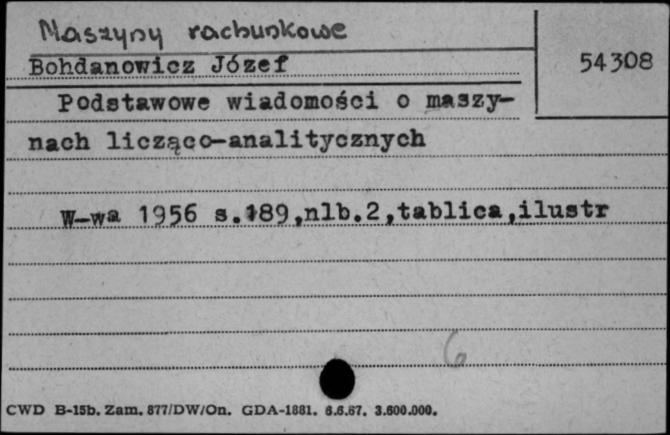 Maszyny rachunkowe
Bohdanowicz Józef
54308
Podstawowe wiadomości o maszy-
nach licząco-analitycznych
W-wa 1956 s.189,nlb.2,tablica,ilustr
6
CWD B-15b. Zam. 877/DW/On. GDA-1881. 6.6.67. 3.600.000.